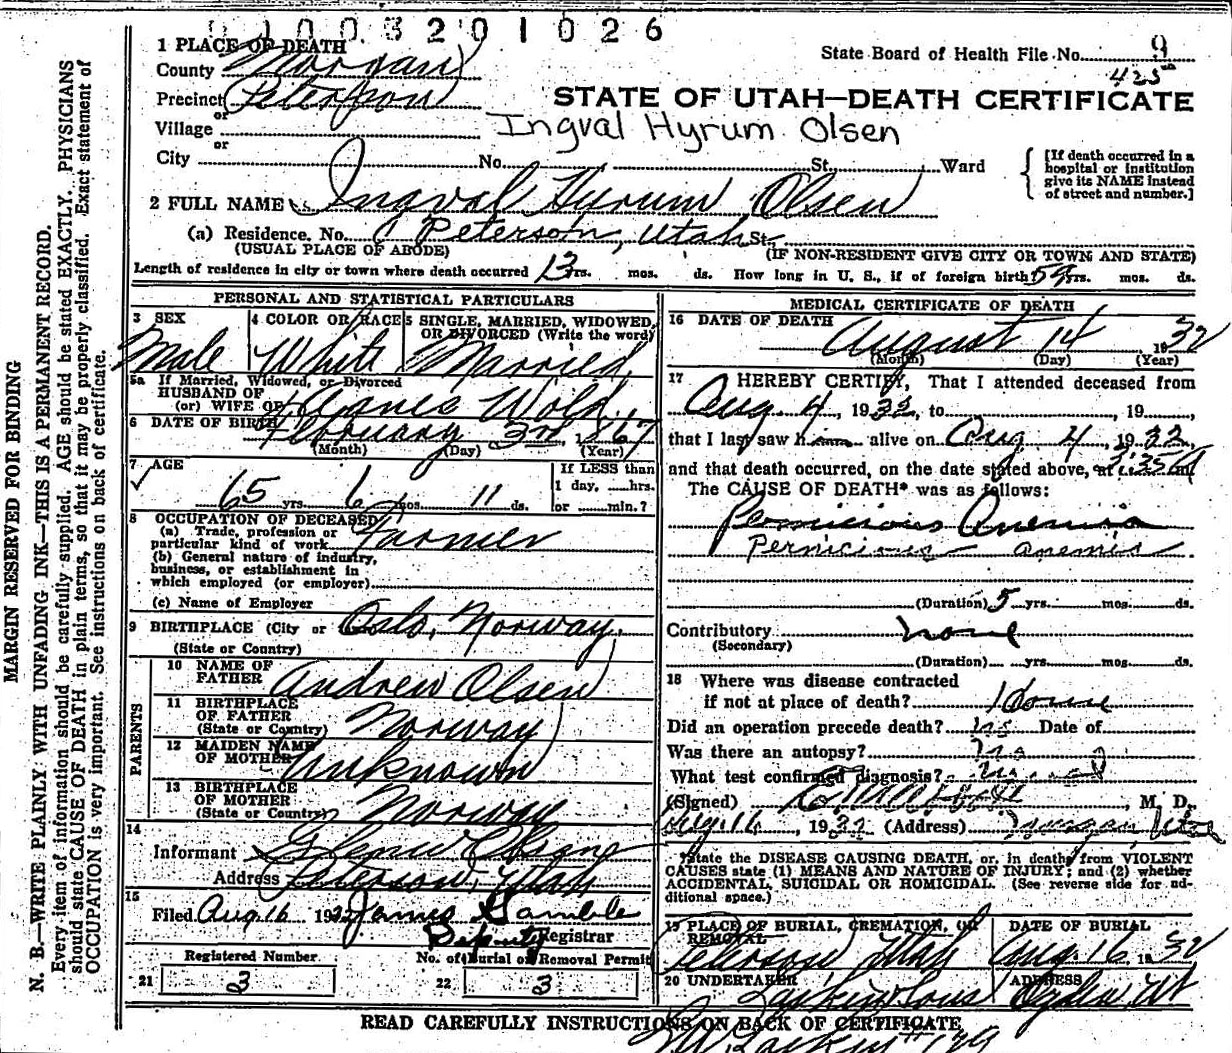 0 1 0 0 3 2 0 1 0 2 6
MARGIN RESERVED FOR BINDING
N. B.—WRITE PLAINLY WITH UNFADING INK—THIS IS A PERMANENT RECORD.
Every item of information should be carefully supplied. AGE should be stated EXACTLY. PHYSICIANS
should state CAUSE OF DEATH in plain terms, so that it may be properly classified. Exact statement of
OCCUPATION is very important. See instructions on back of certificate.
State Board of Health File No. 9
STATE OF UTAH—DEATH CERTIFICATE
1 PLACE OF DEATH
County Morgan
Precinct Peterson
or
Village
or
Ingval Hyrum Olsen
City No. St. Ward
[If death occurred in a
hospital or institution
give its NAME instead
of street and number.]
2 FULL NAME Ingval Hyrum Olsen
(a) Residence. No. Peterson, Utah St.
(USUAL PLACE OF ABODE) (IF NON-RESIDENT GIVE CITY OR TOWN AND STATE)
Length of residence in city or town where death occurred 13 yrs. mos. ds. How long in U. S., if of foreign birth 59 yrs. mos. ds.
PERSONAL AND STATISTICAL PARTICULARS
3 SEX
Male
4 COLOR OR RACE
White
5 SINGLE, MARRIED, WIDOWED,
OR DIVORCED (Write the word)
Married
5a If Married, Widowed, or Divorced
HUSBAND OF
(or) WIFE OF Agnes Wold
6 DATE OF BIRTH February 3rd, 1867
(Month) (Day) (Year)
7 AGE
65 yrs. 6 mos. 11 ds.
If LESS than
1 day, hrs.
or min.?
8 OCCUPATION OF DECEASED
(a) Trade, profession or
particular kind of work Farmer
(b) General nature of industry,
business, or establishment in
which employed (or employer)
(c) Name of Employer
9 BIRTHPLACE (City or Oslo, Norway.
(State or Country)
PARENTS
10 NAME OF
FATHER Andrew Olsen
11 BIRTHPLACE
OF FATHER
(State or Country) Norway
12 MAIDEN NAME
OF MOTHER Unknown
13 BIRTHPLACE
OF MOTHER
(State or Country) Norway
14
Informant
Address Peterson, Utah
15
Filed Aug. 16 1932 James Gamble
Deputy Registrar
Registered Number
21 3
No. of Burial or Removal Permit
22 3
MEDICAL CERTIFICATE OF DEATH
16 DATE OF DEATH
August 14 1932
(Month) (Day) (Year)
17 I HEREBY CERTIFY, That I attended deceased from
Aug. 4, 1932, to , 19 ,
that I last saw him alive on Aug 4, 1932,
and that death occurred, on the date stated above, at m
The CAUSE OF DEATH* was as follows:
Pernicious Anemia
Pernicious anemia
(Duration) 5 yrs. mos. ds.
Contributory none
(Secondary)
(Duration) yrs. mos. ds.
18 Where was disease contracted
if not at place of death? Home
Did an operation precede death? no Date of
Was there an autopsy? no
What test confirmed diagnosis?
(Signed) , M. D.
Aug. 16, 1932 (Address) Morgan Utah
*State the DISEASE CAUSING DEATH, or, in deaths from VIOLENT
CAUSES state (1) MEANS AND NATURE OF INJURY; and (2) whether
ACCIDENTAL, SUICIDAL OR HOMICIDAL. (See reverse side for ad-
ditional space.)
19 PLACE OF BURIAL, CREMATION, OR
REMOVAL
Peterson Utah
DATE OF BURIAL
Aug. 16, 1932
20 UNDERTAKER
Larkin & Sons
ADDRESS
Ogden Ut
READ CAREFULLY INSTRUCTIONS ON BACK OF CERTIFICATE